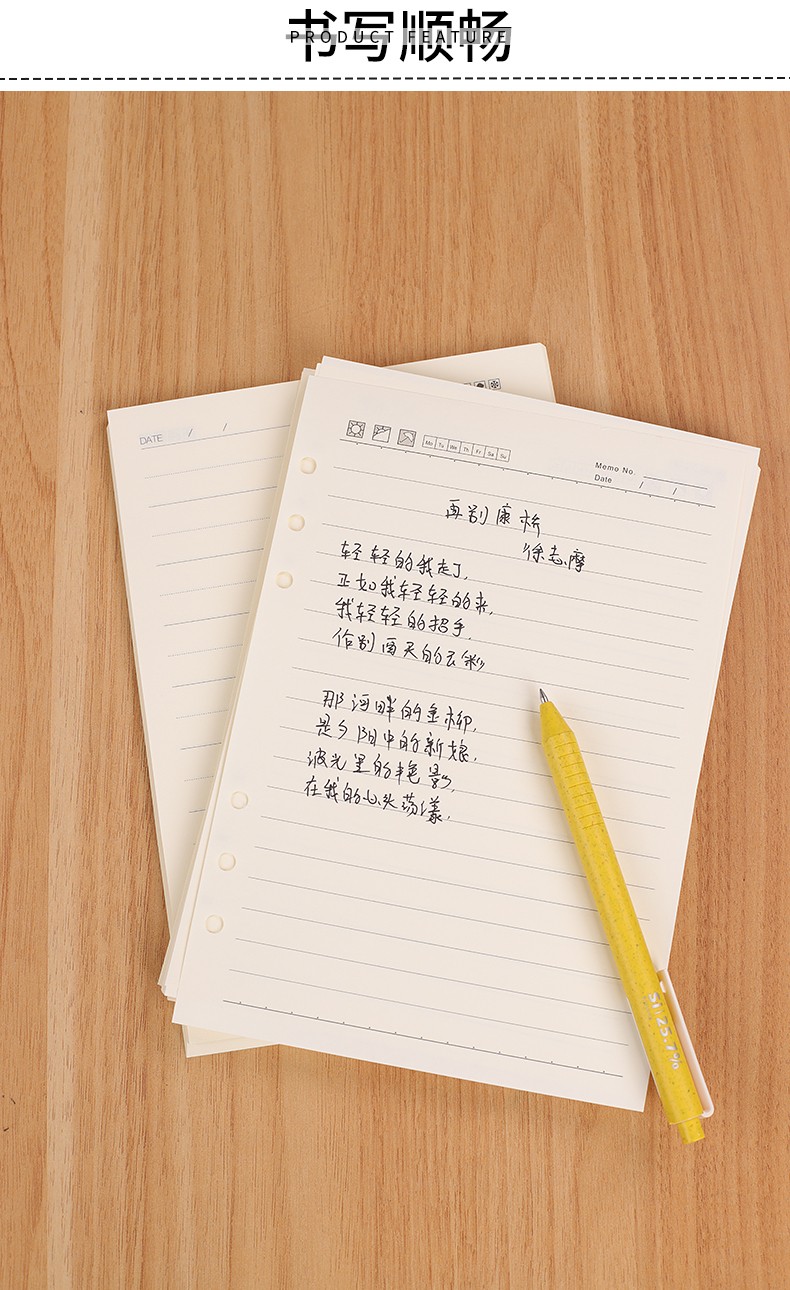 书写顺畅
PRODUCT FEATURE
DATE / /
Mo Tu We Th Fr Sa Su
Memo No.
Date / /
再别康桥
徐志摩
轻轻的我走了,
正如我轻轻的来,
我轻轻的招手,
作别西天的云彩
那河畔的金柳,
是夕阳中的新娘,
波光里的艳影,
在我的心头荡漾.